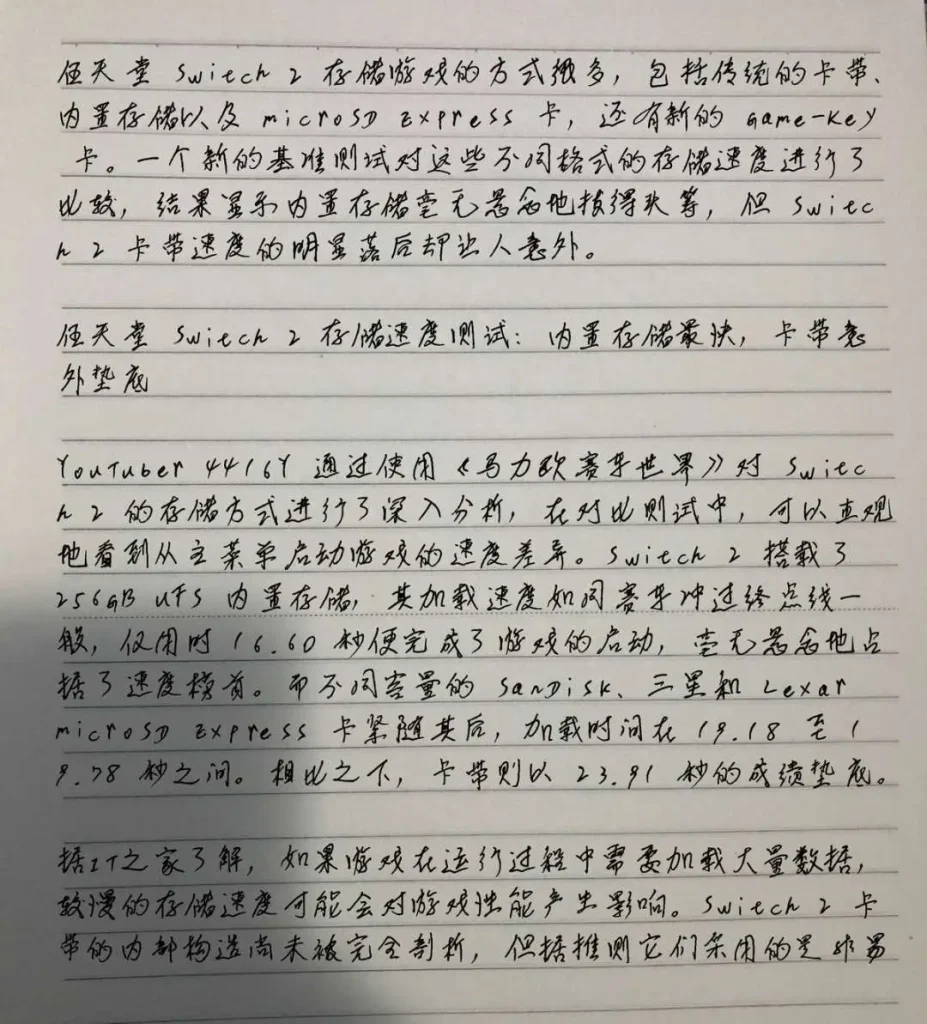 任天堂 Switch 2 存储游戏的方式很多，包括传统的卡带、
内置存储以及 microSD Express 卡，还有新的 Game-Key
卡。一个新的基准测试对这些不同格式的存储速度进行了
比较，结果显示内置存储毫无悬念地拔得头筹，但 Switc
h 2 卡带速度的明显落后却让人意外。
任天堂 Switch 2 存储速度测试：内置存储最快，卡带意
外垫底
YouTuber 4416Y 通过使用《马力欧赛车世界》对 Switc
h 2 的存储方式进行了深入分析，在对比测试中，可以直观
地看到从主菜单启动游戏的速度差异。Switch 2 搭载了
256GB UFS 内置存储，其加载速度如同赛车冲过终点线一
般，仅用时 16.60 秒便完成了游戏的启动，毫无悬念地占
据了速度榜首。而不同容量的 SanDisk、三星和 Lexar
microSD Express 卡紧随其后，加载时间在 19.18 至 1
9.78 秒之间。相比之下，卡带则以 23.91 秒的成绩垫底。
据IT之家了解，如果游戏在运行过程中需要加载大量数据，
较慢的存储速度可能会对游戏性能产生影响。Switch 2 卡
带的内部构造尚未被完全剖析，但据推测它们采用的是非易